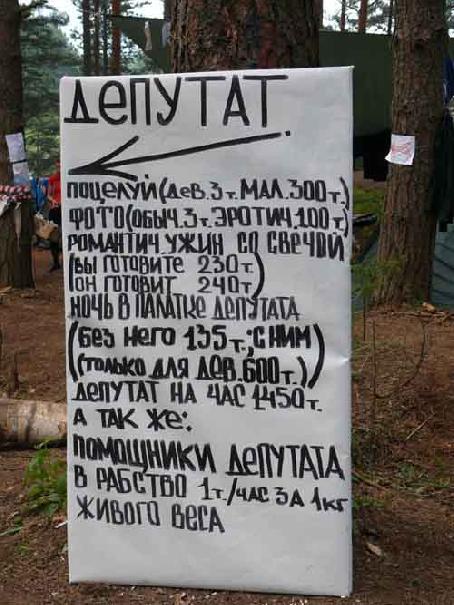 ДЕПУТАТ.
ПОЦЕЛУЙ(ДЕВ.3т.МАЛ.300т.)
ФОТО(ОБЫЧ.3т.ЭРОТИЧ.100т.)
РОМАНТИЧ.УЖИН СО СВЕЧОЙ
(ВЫ ГОТОВИТЕ 230т.
ОН ГОТОВИТ 240т.)
НОЧЬ В ПАЛАТКЕ ДЕПУТАТА
(БЕЗ НЕГО 135т.;С НИМ)
(ТОЛЬКО ДЛЯ ДЕВ.600т.))
ДЕПУТАТ НА ЧАС 1450т.
А ТАК ЖЕ:
ПОМОЩНИКИ ДЕПУТАТА
В РАБСТВО 1т./ЧАС ЗА 1кг
ЖИВОГО ВЕСА